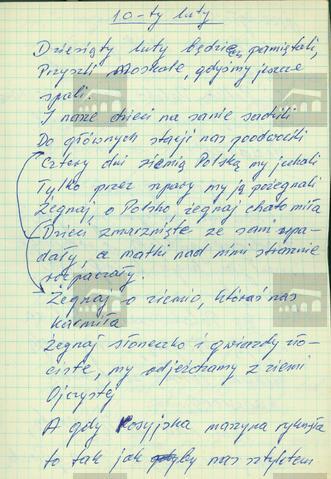 10-ty luty
Dziesiąty luty będziem pamiętali,
Przyszli Moskale, gdyśmy jeszcze
spali.
I nasze dzieci na sanie sadzili
Do głównych stacji nas podwozili
Cztery dni ziemią Polską my jechali
Tylko przez szpary my ją pożegnali
Żegnaj, o Polsko żegnaj chato miła
Dzieci zmarznięte ze sani wpa-
dały, a matki nad nimi strasznie
rozpaczały.
Żegnaj o ziemio, któraś nas
karmiła
Żegnaj słoneczko i gwiazdy zło-
ciste, my odjeżdzamy z ziemi
Ojczystej
A gdy Rosyjska maszyna ryknęła
to tak jak gdyby nas sztyletem